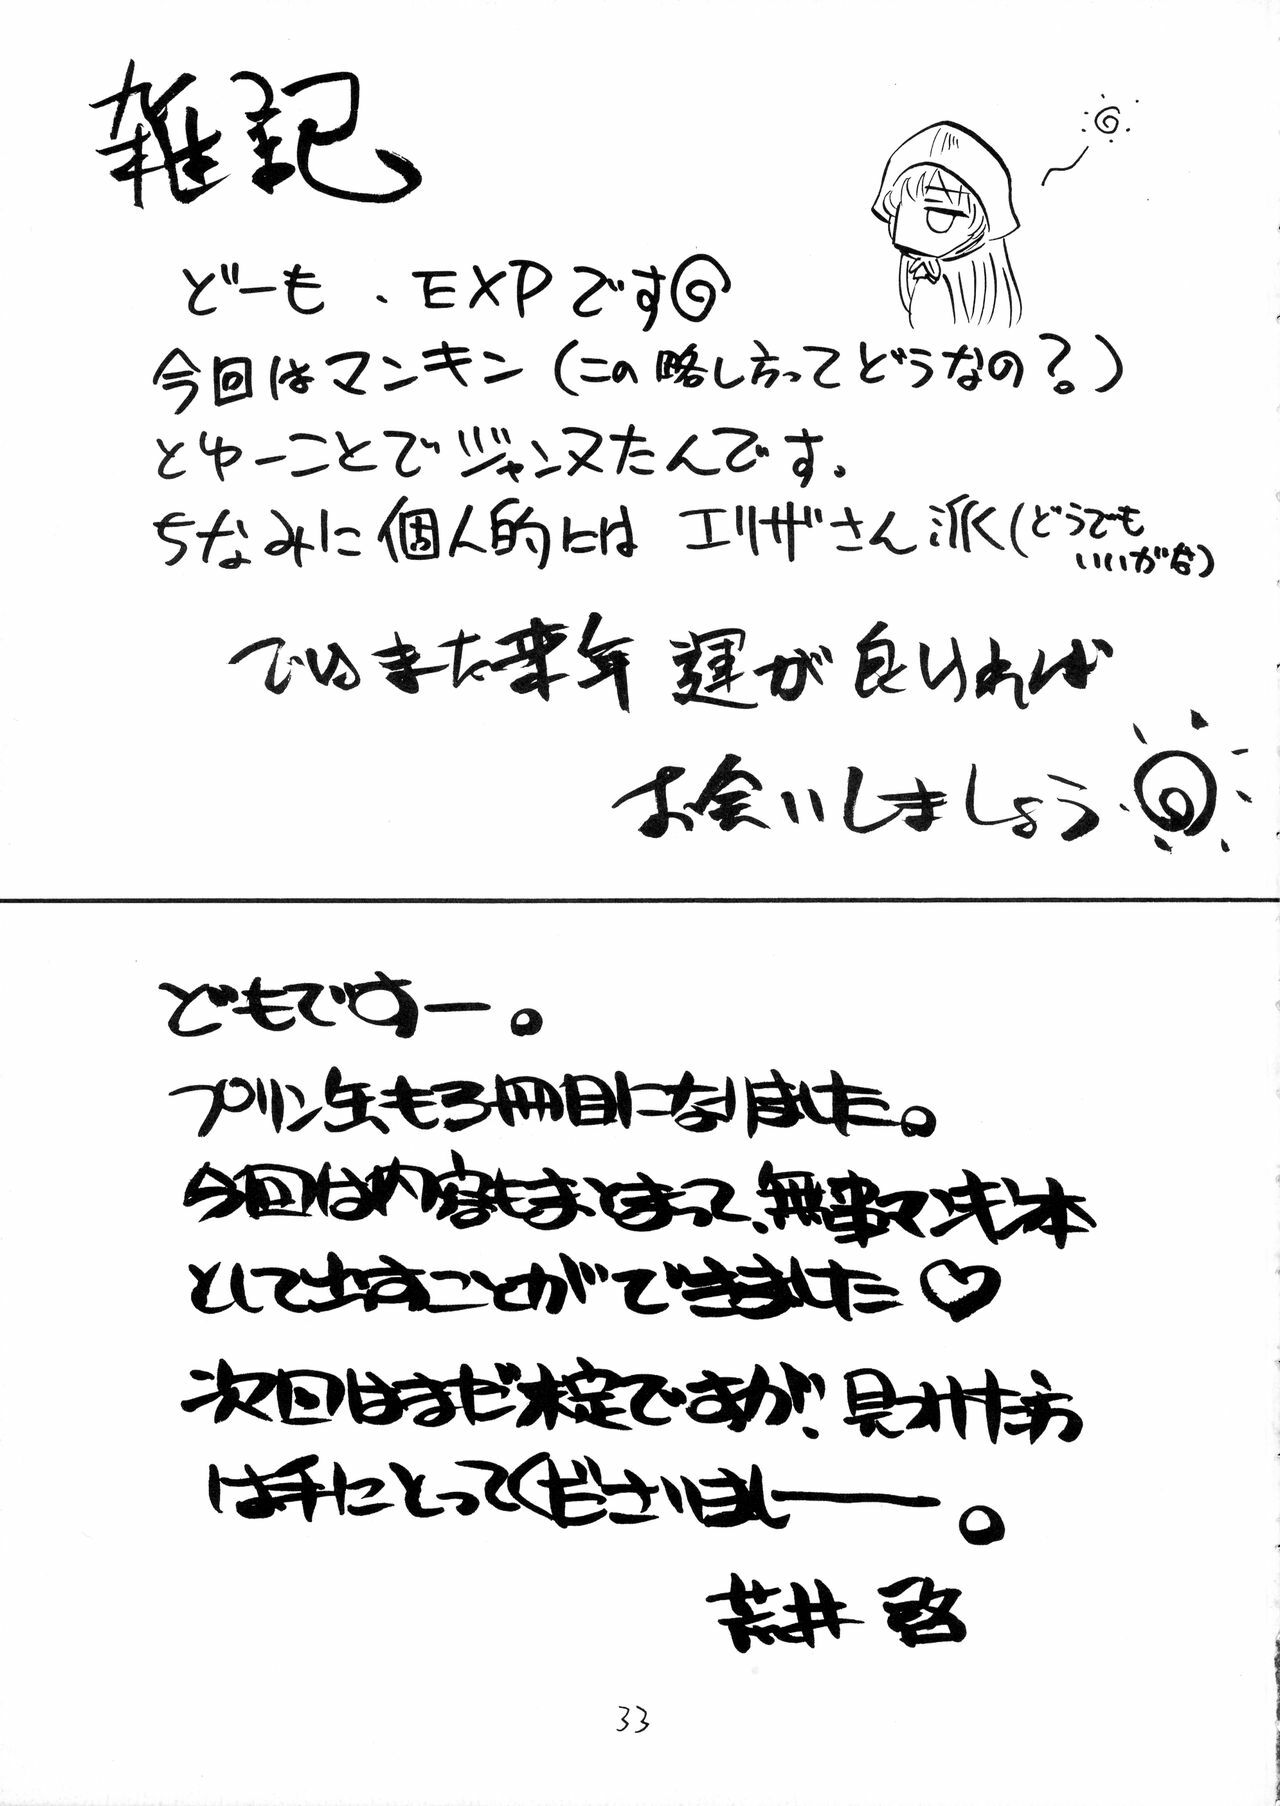 雑記
どーも、EXPです
今回はマンキン(この略し方ってどうなの?)
とゆーことでジャンヌたんです。
ちなみに個人的にはエリザさん派(どうでも
いいがな)
ではまた来年運が良ければ
お会いしましょう
どもですー。
プリン缶も3冊目になりました。
今回は内容もまとまって、無事マンキン本
として出すことができました♡
次回はまだ未定ですが、見つけた方
は手にとってくださいましー。
荒井 啓
33